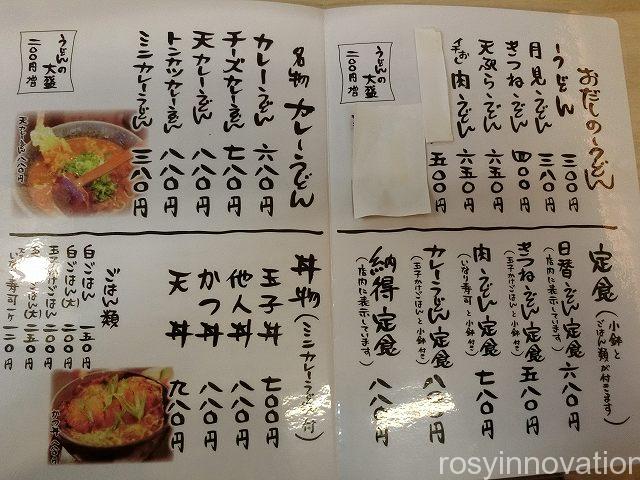 おだしのうどん
うどん 三〇〇円
月見うどん 三八〇円
きつねうどん 四〇〇円
天ぷらうどん 六五〇円
イチおし 肉うどん 六五〇円
五〇〇円
うどんの大盛
二〇〇円増
定食(小鉢とごはん類が付きます)
日替うどん定食 六八〇円
(店内に表示しています)
きつねうどん定食 五八〇円
(玉子かけごはんと小鉢付き)
肉うどん定食 七八〇円
(いなり寿司と小鉢付き)
カレーうどん定食 八八〇円
(玉子かけごはんと小鉢付き)
納得定食 八八〇円
(店内に表示しています)
名物 カレーうどん
カレーうどん 六八〇円
チーズカレーうどん 七八〇円
天カレーうどん 八八〇円
トンカツカレーうどん 八八〇円
ミニカレーうどん 三八〇円
うどんの大盛
二〇〇円増
天カレーうどん 八八〇円
丼物(ミニカレーうどん付)
玉子丼 七〇〇円
他人丼 八八〇円
かつ丼 八八〇円
天丼 九八〇円
ごはん類
白ごはん 一五〇円
白ごはん(大) 二〇〇円
玉子かけごはん 二〇〇円
(大) 二五〇円
いなり寿司 一ケ 一二〇円
rosyinnovation